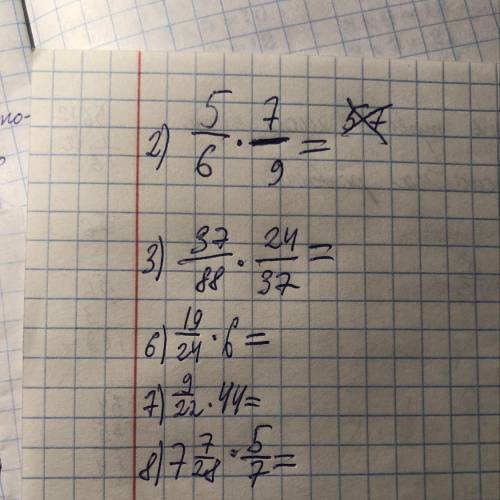 2) 5/6 · 7/9 =
3) 37/88 · 24/37 =
6) 19/24 · 6 =
7) 9/22 · 44 =
8) 7 7/28 · 5/7 =